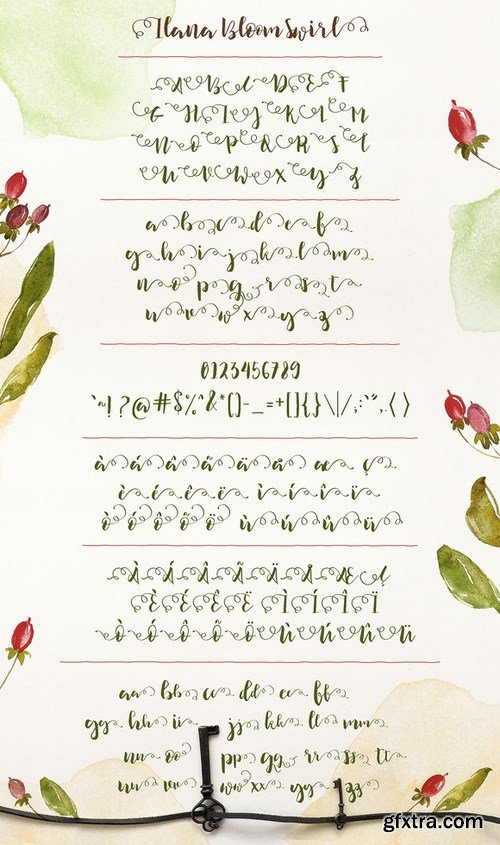 Ilana Bloom Swirl
A B C D E F
G H I J K L M
N O P Q R S T
U V W X Y Z
a b c d e f
g h i j k l m
n o p q r s t
u v w x y z
0123456789
`~!?@#$%^&*()-_=+[]{}\|/;:`",.<>
à á â ã ä å æ ç
è é ê ë ì í î ï
ò ó ô õ ö ù ú û ü
À Á Â Ã Ä Å Æ Ç
È É Ê Ë Ì Í Î Ï
Ò Ó Ô Õ Ö Ù Ú Û Ü
aa bb cc dd ee ff
gg hh ii jj kk ll mm
nn oo pp qq rr ss tt
uu vv ww xx yy zz
gfxtra.com